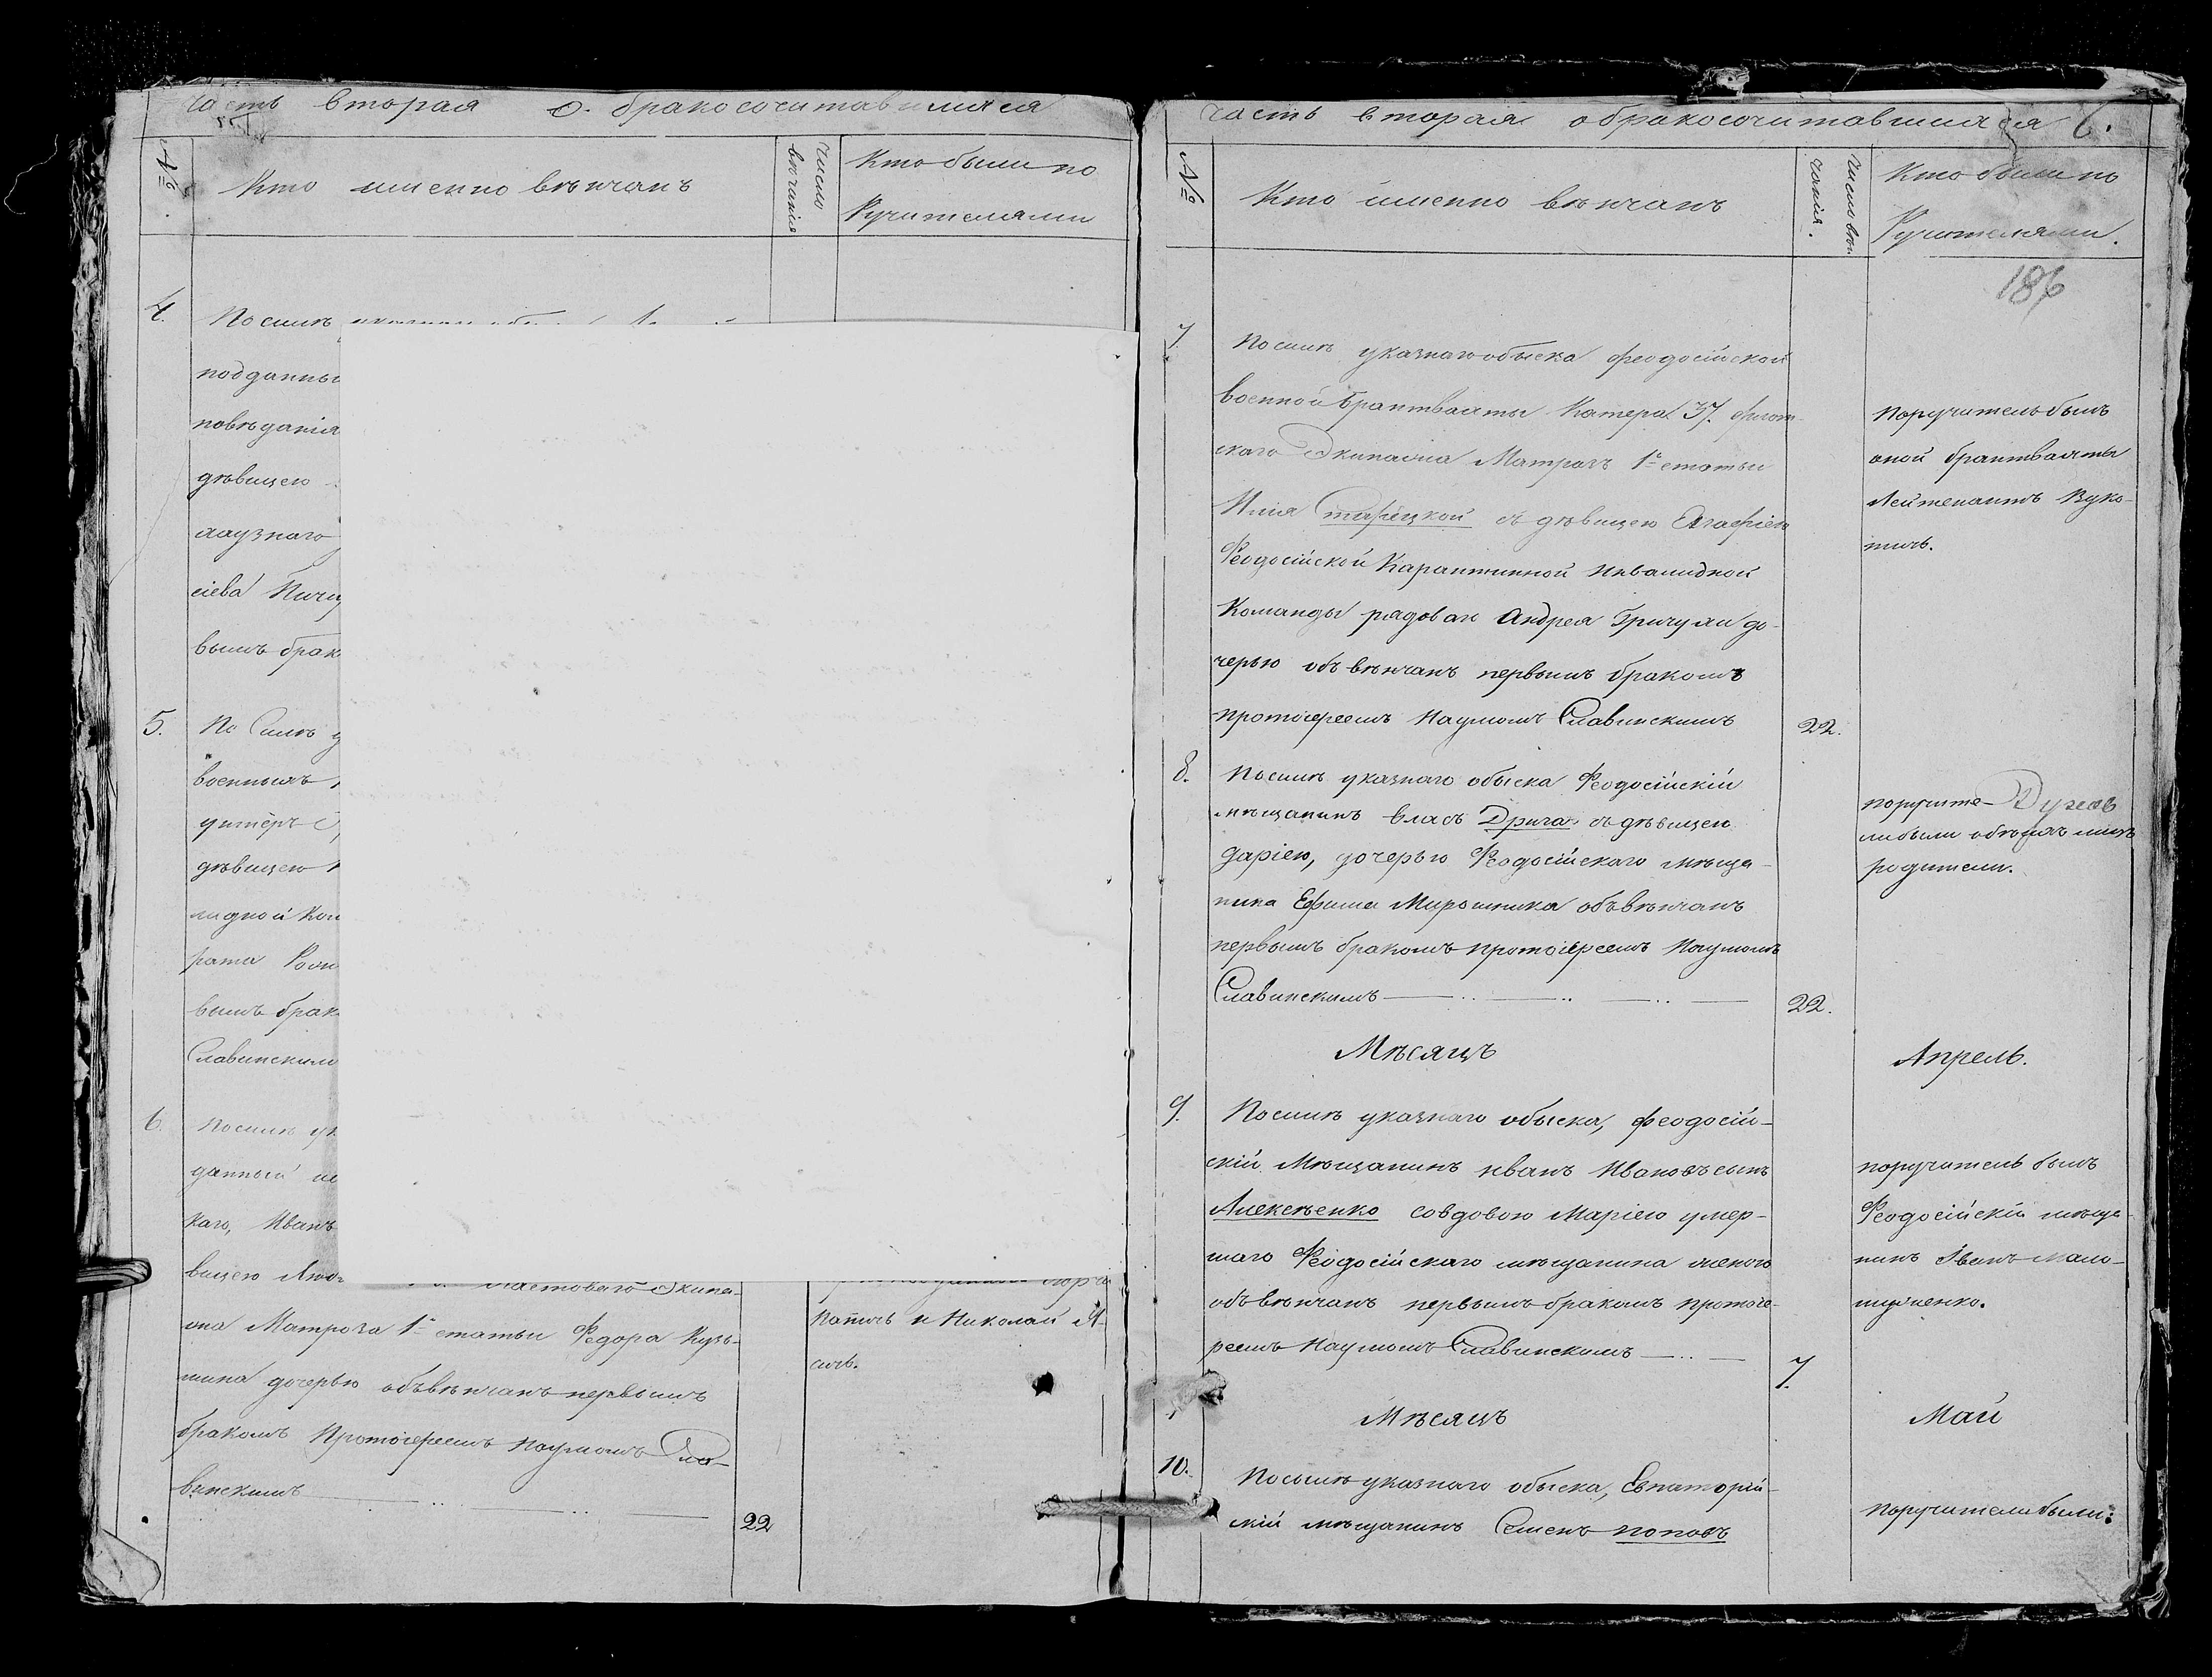 часть вторая о бракосочитавшился
№
Кто именно вѣнчанъ
число
вѣнчанія
Кто были по
Ручителями
4.
По силѣ
подданны
повѣданія
дѣвицею
сіева
вымъ брак
5.
По Силѣ у
военнымъ
унтеръ
дѣвицею
лидной Ком
рата
вымъ брак
Славинским
6.
По силѣ ук
данный
каго, Иванъ
вицею ластоваго Экипа-
жа Матроза 1й статьи Федора Кузь-
мина дочерью объвѣнчанъ первымъ
бракомъ Протоіереемъ Наумомъ Сла-
винскимъ
22
и Николай
часть вторая о бракосочитавшился 6.
№
Кто именно вѣнчанъ
число вѣн
чанія.
Кто были по
Ручителями.
186
7.
По силѣ указнаго обыска Феодосійской
военной брантвахты Катера 37. флот-
скаго Экипажа Матрозъ 1й статьи
Илия съ дѣвицею Агафіею
Феодосійской Карантинной Инвалидной
Команды рядоваго Андрея Гричухи до-
черью объвѣнчанъ первымъ бракомъ
протоіереемъ Наумомъ Славинскимъ
22.
Поручитель былъ
оной брантвахты
Лейтенантъ Вуко-
тичъ.
8.
По силѣ указнаго обыска Феодосійскій
мѣщанинъ Власъ Дрига съ дѣвицею
Даріею, дочерью Феодосійскаго мѣща-
нина Ефима Мирошника объвѣнчанъ
первымъ бракомъ протоіереемъ Наумомъ
Славинскимъ
22.
поручите-
ли были
родители.
Мѣсяцъ Апрель.
9.
По силѣ указнаго обыска, Феодосій-
скій Мѣщанинъ Иванъ Ивановъ сынъ
Алексѣенко со вдовою Маріею умер-
шаго Феодосійскаго мѣщанина
объвѣнчанъ первымъ бракомъ протоіе-
реемъ Наумомъ Славинскимъ
7.
поручитель былъ
Феодосійскій мѣща-
нинъ Иванъ Мало-
Мѣсяцъ Май
10.
По силѣ указнаго обыска, Евпаторій-
скій мѣщанинъ Семенъ Поповъ
Поручители были: